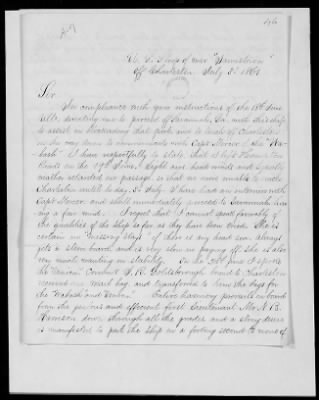 U. S. Sloop of war "Jamestown"
Off Charleston July 2d 1861
Sir,
In compliance with your instructions of the 18th June
Ulto, directing me to proceed off Savannah, Ga, with this ship
to assist in blockading that port and to touch off Charleston
on the way down to communicate with Capt Mercer of the "Wa-
bash" I have respectfully to state, that I left Hampton
Roads on the 19th June. Light and head winds and squally
weather retarded our passage so that we were unable to make
Charleston until to day, 2d July. I have had an interview with
Capt Mercer and shall immediately proceed to Savannah, hav-
ing a fair wind. I regret that I cannot speak favorably of
the qualities of the ship so far as they have been tried. She is
certain in "missing stays" if there is any head sea, always
gets a stern board and is very slow in paying off. She is also
very much wanting in stability. On the June I spoke
the "Union" Comdant J. R. Goldsborough bound to Charleston
received our mail bag and transferred to him the bags for
the "Wabash" and "Union". Entire harmony prevails on board
from the zealous and efficient first Lieutenant Mr N. B.
Harrison down through all the grades and a strong desire
is manifested to put the ship on a footing second to none of